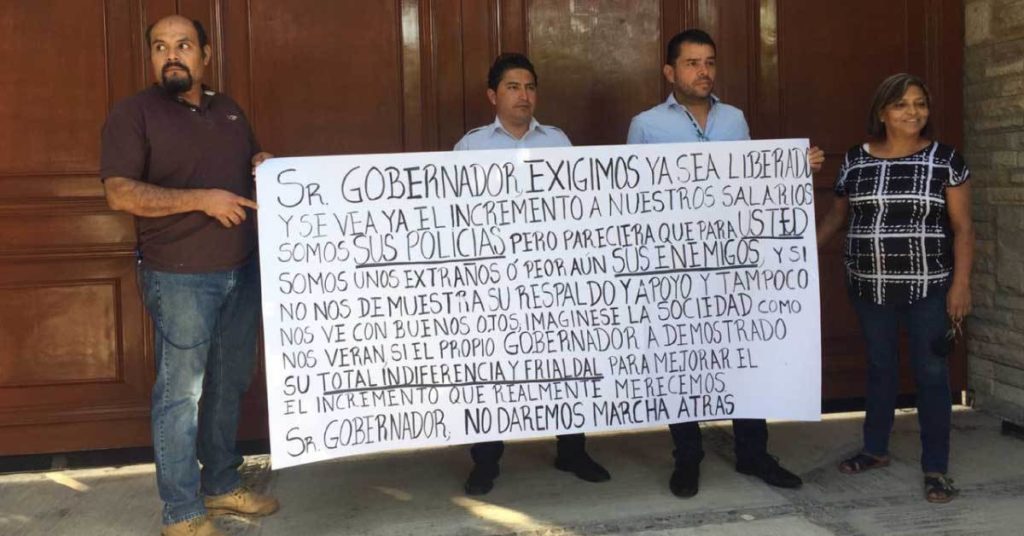 SR. GOBERNADOR, EXIGIMOS YA SEA LIBERADO
Y SE VEA YA EL INCREMENTO A NUESTROS SALARIOS
SOMOS SUS POLICIAS PERO PARECIERA QUE PARA USTED
SOMOS UNOS EXTRAÑOS Ó PEOR AUN SUS ENEMIGOS, Y SI
NO NOS DEMUESTRA SU RESPALDO Y APOYO Y TAMPOCO
NOS VE CON BUENOS OJOS, IMAGINESE LA SOCIEDAD COMO
NOS VERAN SI EL PROPIO GOBERNADOR A DEMOSTRADO
SU TOTAL INDIFERENCIA Y FRIALDAL PARA MEJORAR EL
EL INCREMENTO QUE REALMENTE MERECEMOS
SR. GOBERNADOR, NO DAREMOS MARCHA ATRAS